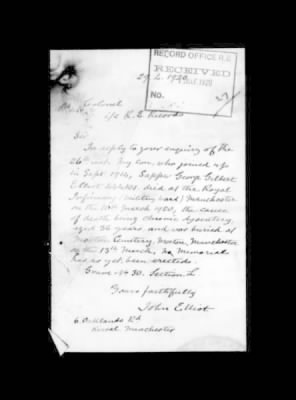 RECORD OFFICE R.E.
RECEIVED
1920
NO.
29.4.1920
Colonel
i/c R.E. Records
Sir
In reply to your enquiry of the
26th inst. My son, who joined up
in Sept 1914, Sapper George Gilbert
Elliot died at the Royal
Infirmary (Military ward) Manchester
on the March 1920, the cause
of death being chronic dysentery,
aged 36 years and was buried at
Moston Cemetery, Moston, Manchester
on the 13th March, No Memorial
has as yet been erected.
Grave No 30. Section L
Yours faithfully
John Elliot
6 Oaklands Rd
Kersal Manchester